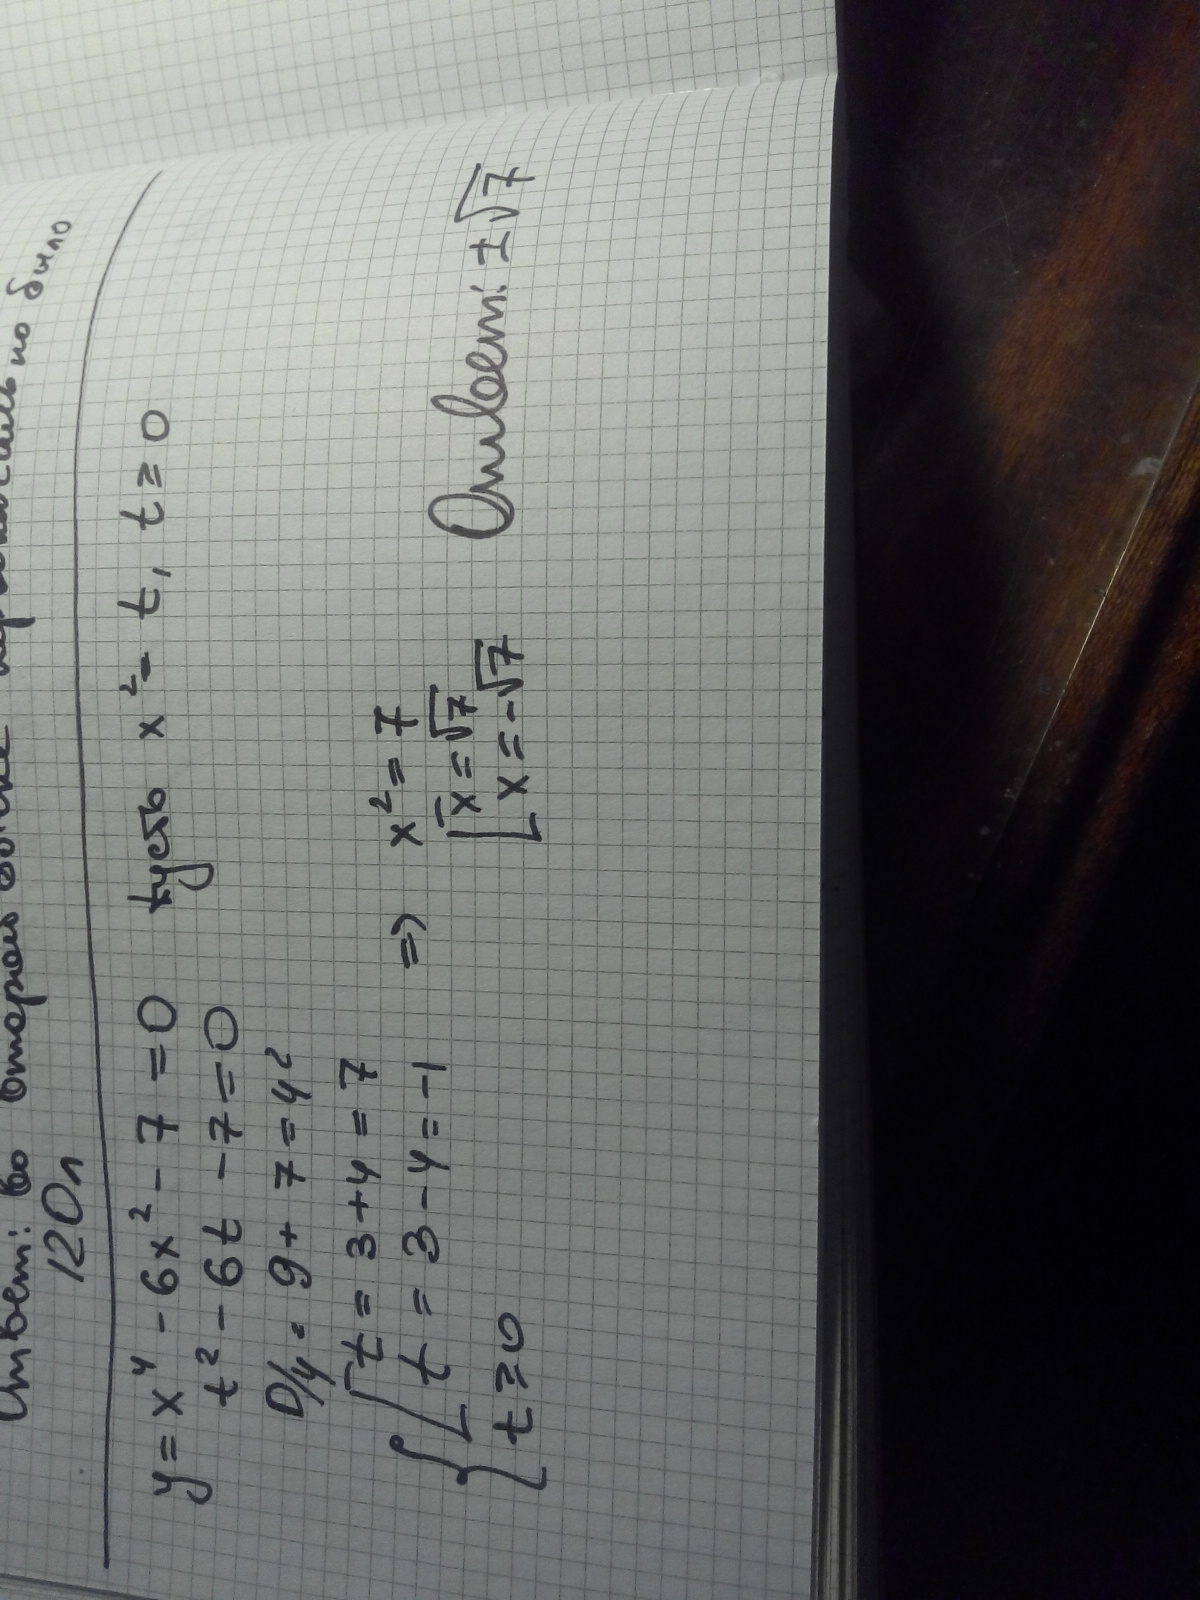 Ответ: во втором бочке первоначально было
120л
y = x⁴ - 6x² - 7 = 0 пусть x² = t, t ≥ 0
t² - 6t - 7 = 0
D/4 = 9 + 7 = 4²
t = 3 + 4 = 7
t = 3 - 4 = -1 ⇒ x² = 7
t ≥ 0 x = √7
x = -√7 Ответ: ±√7